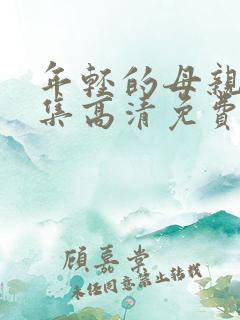 年轻的母親
集高清免費
顧慕棠
未经同意禁止转载